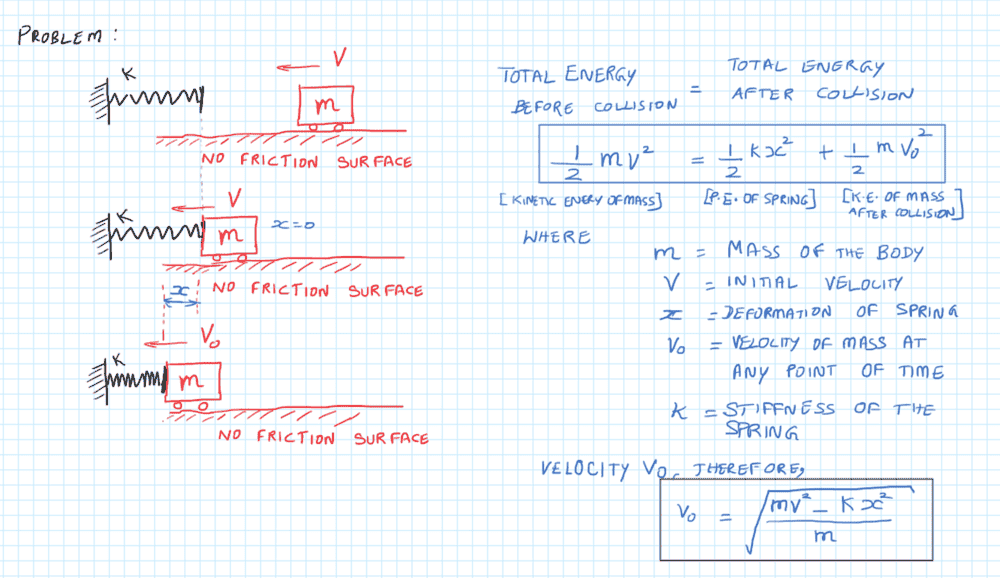 PROBLEM :
K
V
m
NO FRICTION SURFACE
K
V
m
x=0
x
NO FRICTION SURFACE
V₀
K
m
NO FRICTION SURFACE
TOTAL ENERGY BEFORE COLLISION = TOTAL ENERGY AFTER COLLISION
1/2 mv² = 1/2 Kx² + 1/2 m V₀²
[KINETIC ENERY OF MASS] [P.E. OF SPRING] [K.E. OF MASS AFTER COLLISION]
WHERE
m = MASS OF THE BODY
V = INITIAL VELOCITY
x = DEFORMATION OF SPRING
V₀ = VELOCITY OF MASS AT
ANY POINT OF TIME
K = STIFFNESS OF THE
SPRING
VELOCITY V₀, THEREFORE,
V₀ = √((mv² - Kx²)/m)